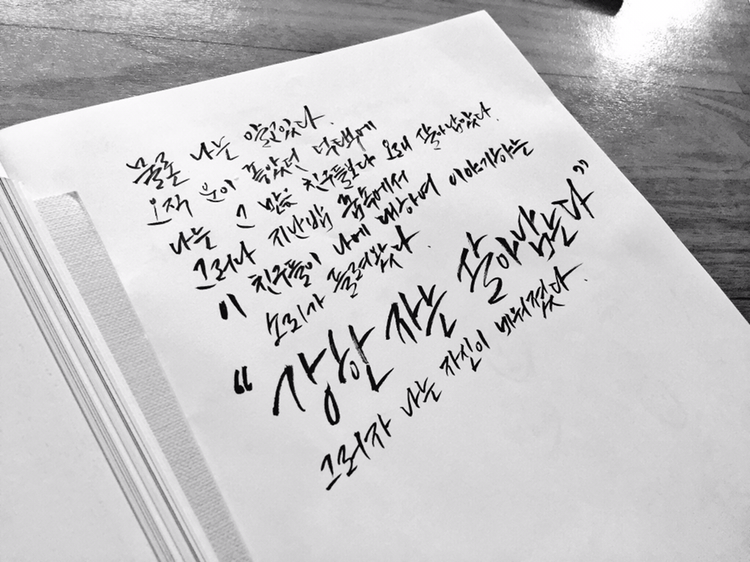 물론 나는 알고있다.
오직 운이 좋았던 덕택에
나는 그 많은 친구들보다 오래 살아남았다.
그러나 지난밤 꿈속에서
이 친구들이 나에 대하여 이야기하는
소리가 들려왔다.
“강한 자는 살아남는다”
그러자 나는 자신이 미워졌다.